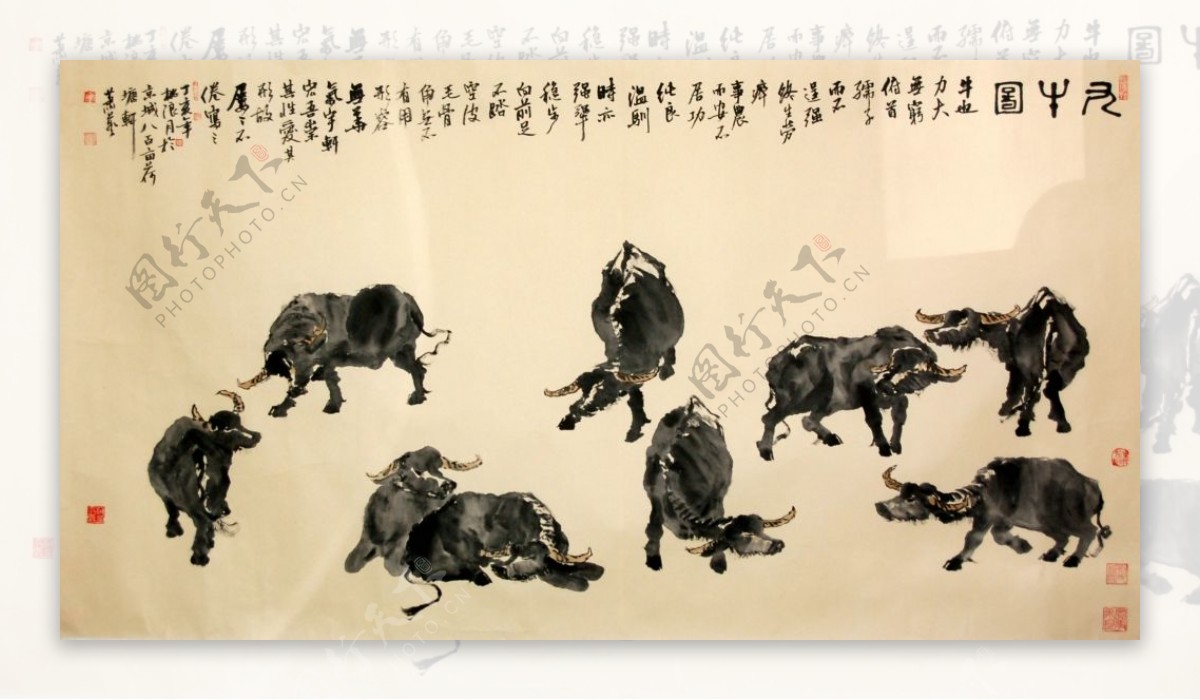 九牛圖
牛也
力大
無窮
俯首
孺子
而不
逞强
終生勞
瘁
事農
而安不
居功
純良
溫馴
時亦
强犟
穩步
向前足
不踏
空皮
毛骨
角無不
有用
形容
無華
氣宇軒
宏吾崇
其性愛其
形故
屢屢不
倦寫之
丁亥年
月於
京城八百亩荷
塘軒
图行天下
PHOTOPHOTO.CN
图行天下
PHOTOPHOTO.CN